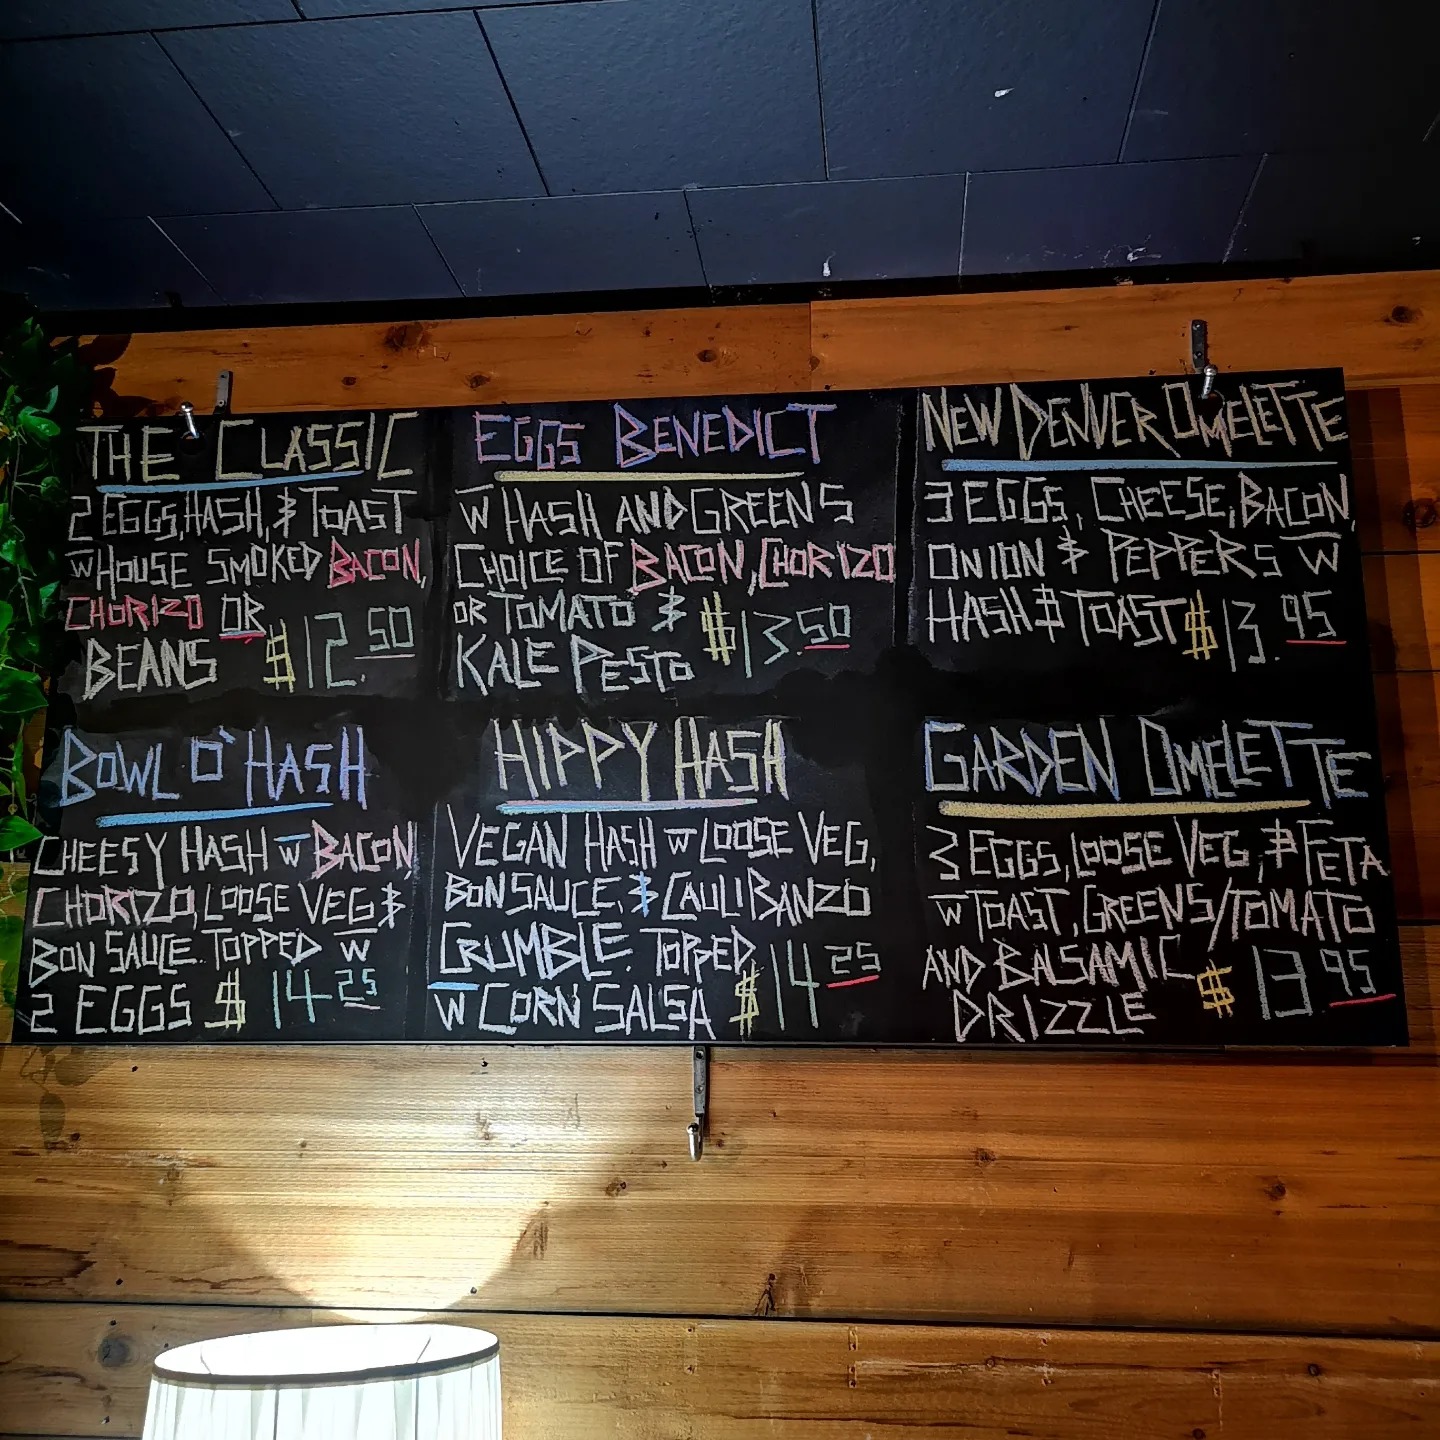 THE CLASSIC
2 EGGS, HASH, & TOAST
W HOUSE SMOKED BACON,
CHORIZO OR
BEANS $12.50
EGGS BENEDICT
W HASH AND GREENS
CHOICE OF BACON, CHORIZO
OR TOMATO &
KALE PESTO $13.50
NEW DENVER OMELETTE
3 EGGS, CHEESE, BACON,
ONION & PEPPERS W
HASH & TOAST $13.95
BOWL O'HASH
CHEESY HASH W BACON,
CHORIZO, LOOSE VEG &
BON SAUCE. TOPPED W
2 EGGS $14 25
HIPPY HASH
VEGAN HASH W LOOSE VEG,
BON SAUCE, & CAULIBANZO
CRUMBLE. TOPPED
W CORN SALSA $14 25
GARDEN OMELETTE
3 EGGS, LOOSE VEG, & FETA
W TOAST, GREENS/TOMATO
AND BALSAMIC
DRIZZLE $13 95